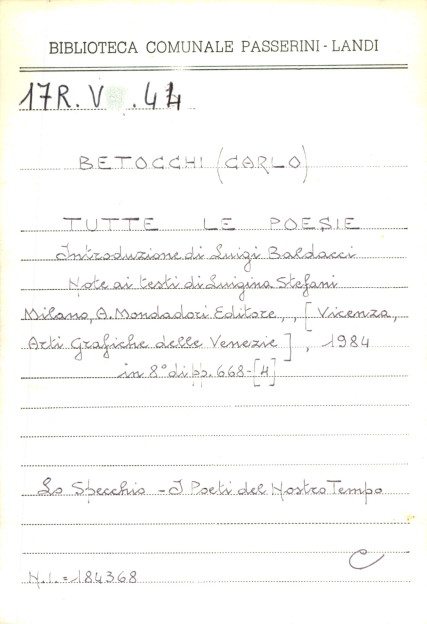 BIBLIOTECA COMUNALE PASSERINI - LANDI
17R. V .44
BETOCCHI (CARLO)
TUTTE LE POESIE
Introduzione di Luigi Baldacci
Note ai testi di Luigina Stefani
Milano, A. Mondadori Editore, , [Vicenza,
Arti Grafiche delle Venezie], 1984
in 8° di pp. 668-[4]
Lo Specchio - I Poeti del Nostro Tempo
C
N.I. = 184368